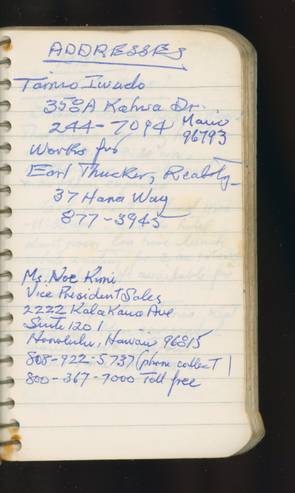 ADDRESSES
Tamio Iwado
353A Kahwa Dr.
244-7094 Maui
96793
Works for
Earl Thucker, Realoty
37 Hana Way
877-3945
Ms. Noe Kimi
Vice President Sales
2222 Kalakaua Ave
Suite 1201
Honolulu, Hawaii 96815
808-922-5737 (phone collect)
800-367-7000 Toll free